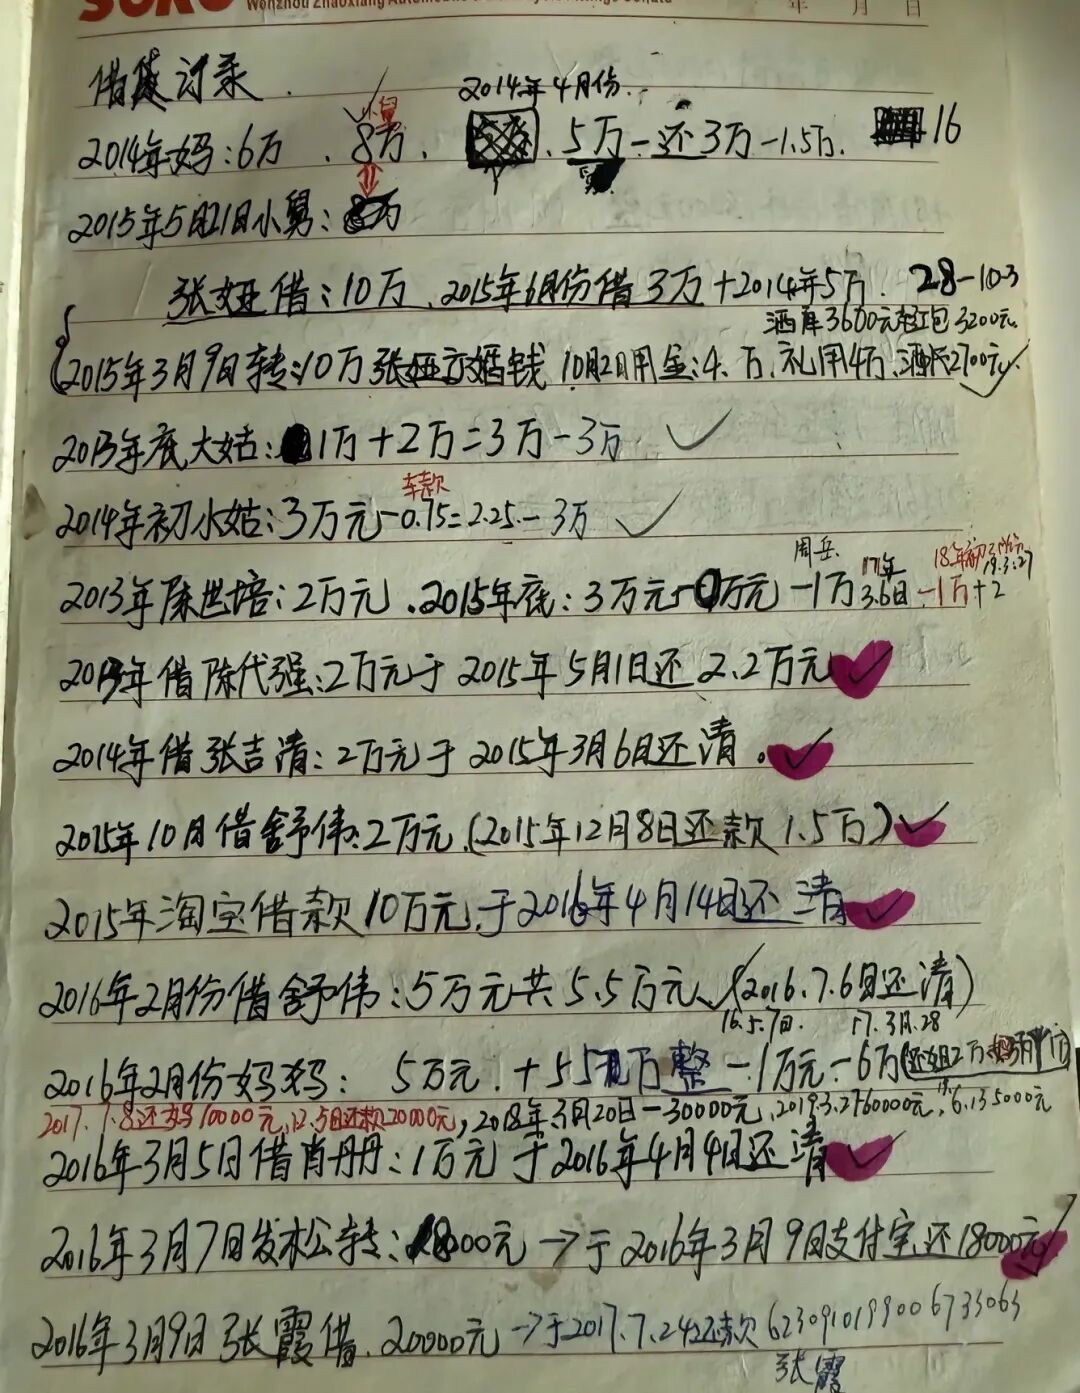 年 月 日
借贷记录.
2014年4月份.
2014年妈:6万 . 8万 . 5万 - 还3万 - 1.5万. 16
小舅
2015年5月21日小舅: 8万
张娅借:10万. 2015年6月份借3万+2014年5万. 28-10-3
酒席3600元 红包3200元
2015年3月9日转:10万张娅交婚钱 10月2日用金:4.万.礼用4万.酒席2700元
2013年底大姑: 1万+2万=3万-3万
车款
2014年初小姑:3万元-0.75=2.25-3万
周岳. 17年 18年初 19.3.27
2013年陈世培:2万元.2015年底:3万元-1万元-1万3.6日-1万+2
2013年借陈代强:2万元于2015年5月1日还2.2万元
2014年借张吉清:2万元于2015年3月6日还清.
2015年10月借舒伟:2万元.(2015年12月8日还款1.5万)
2015年淘宝借款10万元.于2016年4月14日还清
2016年2月份借舒伟:5万元共5.5万元.(2016.7.6日还清)
16.5.7日. 17.3月.28
2016年2月份妈妈: 5万元.+5 万整-1万元-6万(还姐2万
2017.7.8还妈10000元,12.5日还款20000元,2018年3月20日-30000元,2019.3.27 60000元, 6.13 5000元
2016年3月5日借肖丹丹:1万元于2016年4月4日还清
2016年3月7日发松转:18000元→于2016年3月9日支付宝还18000元
2016年3月9日张霞借.20000元→于2017.7.24还款 6230910199006733063
张霞